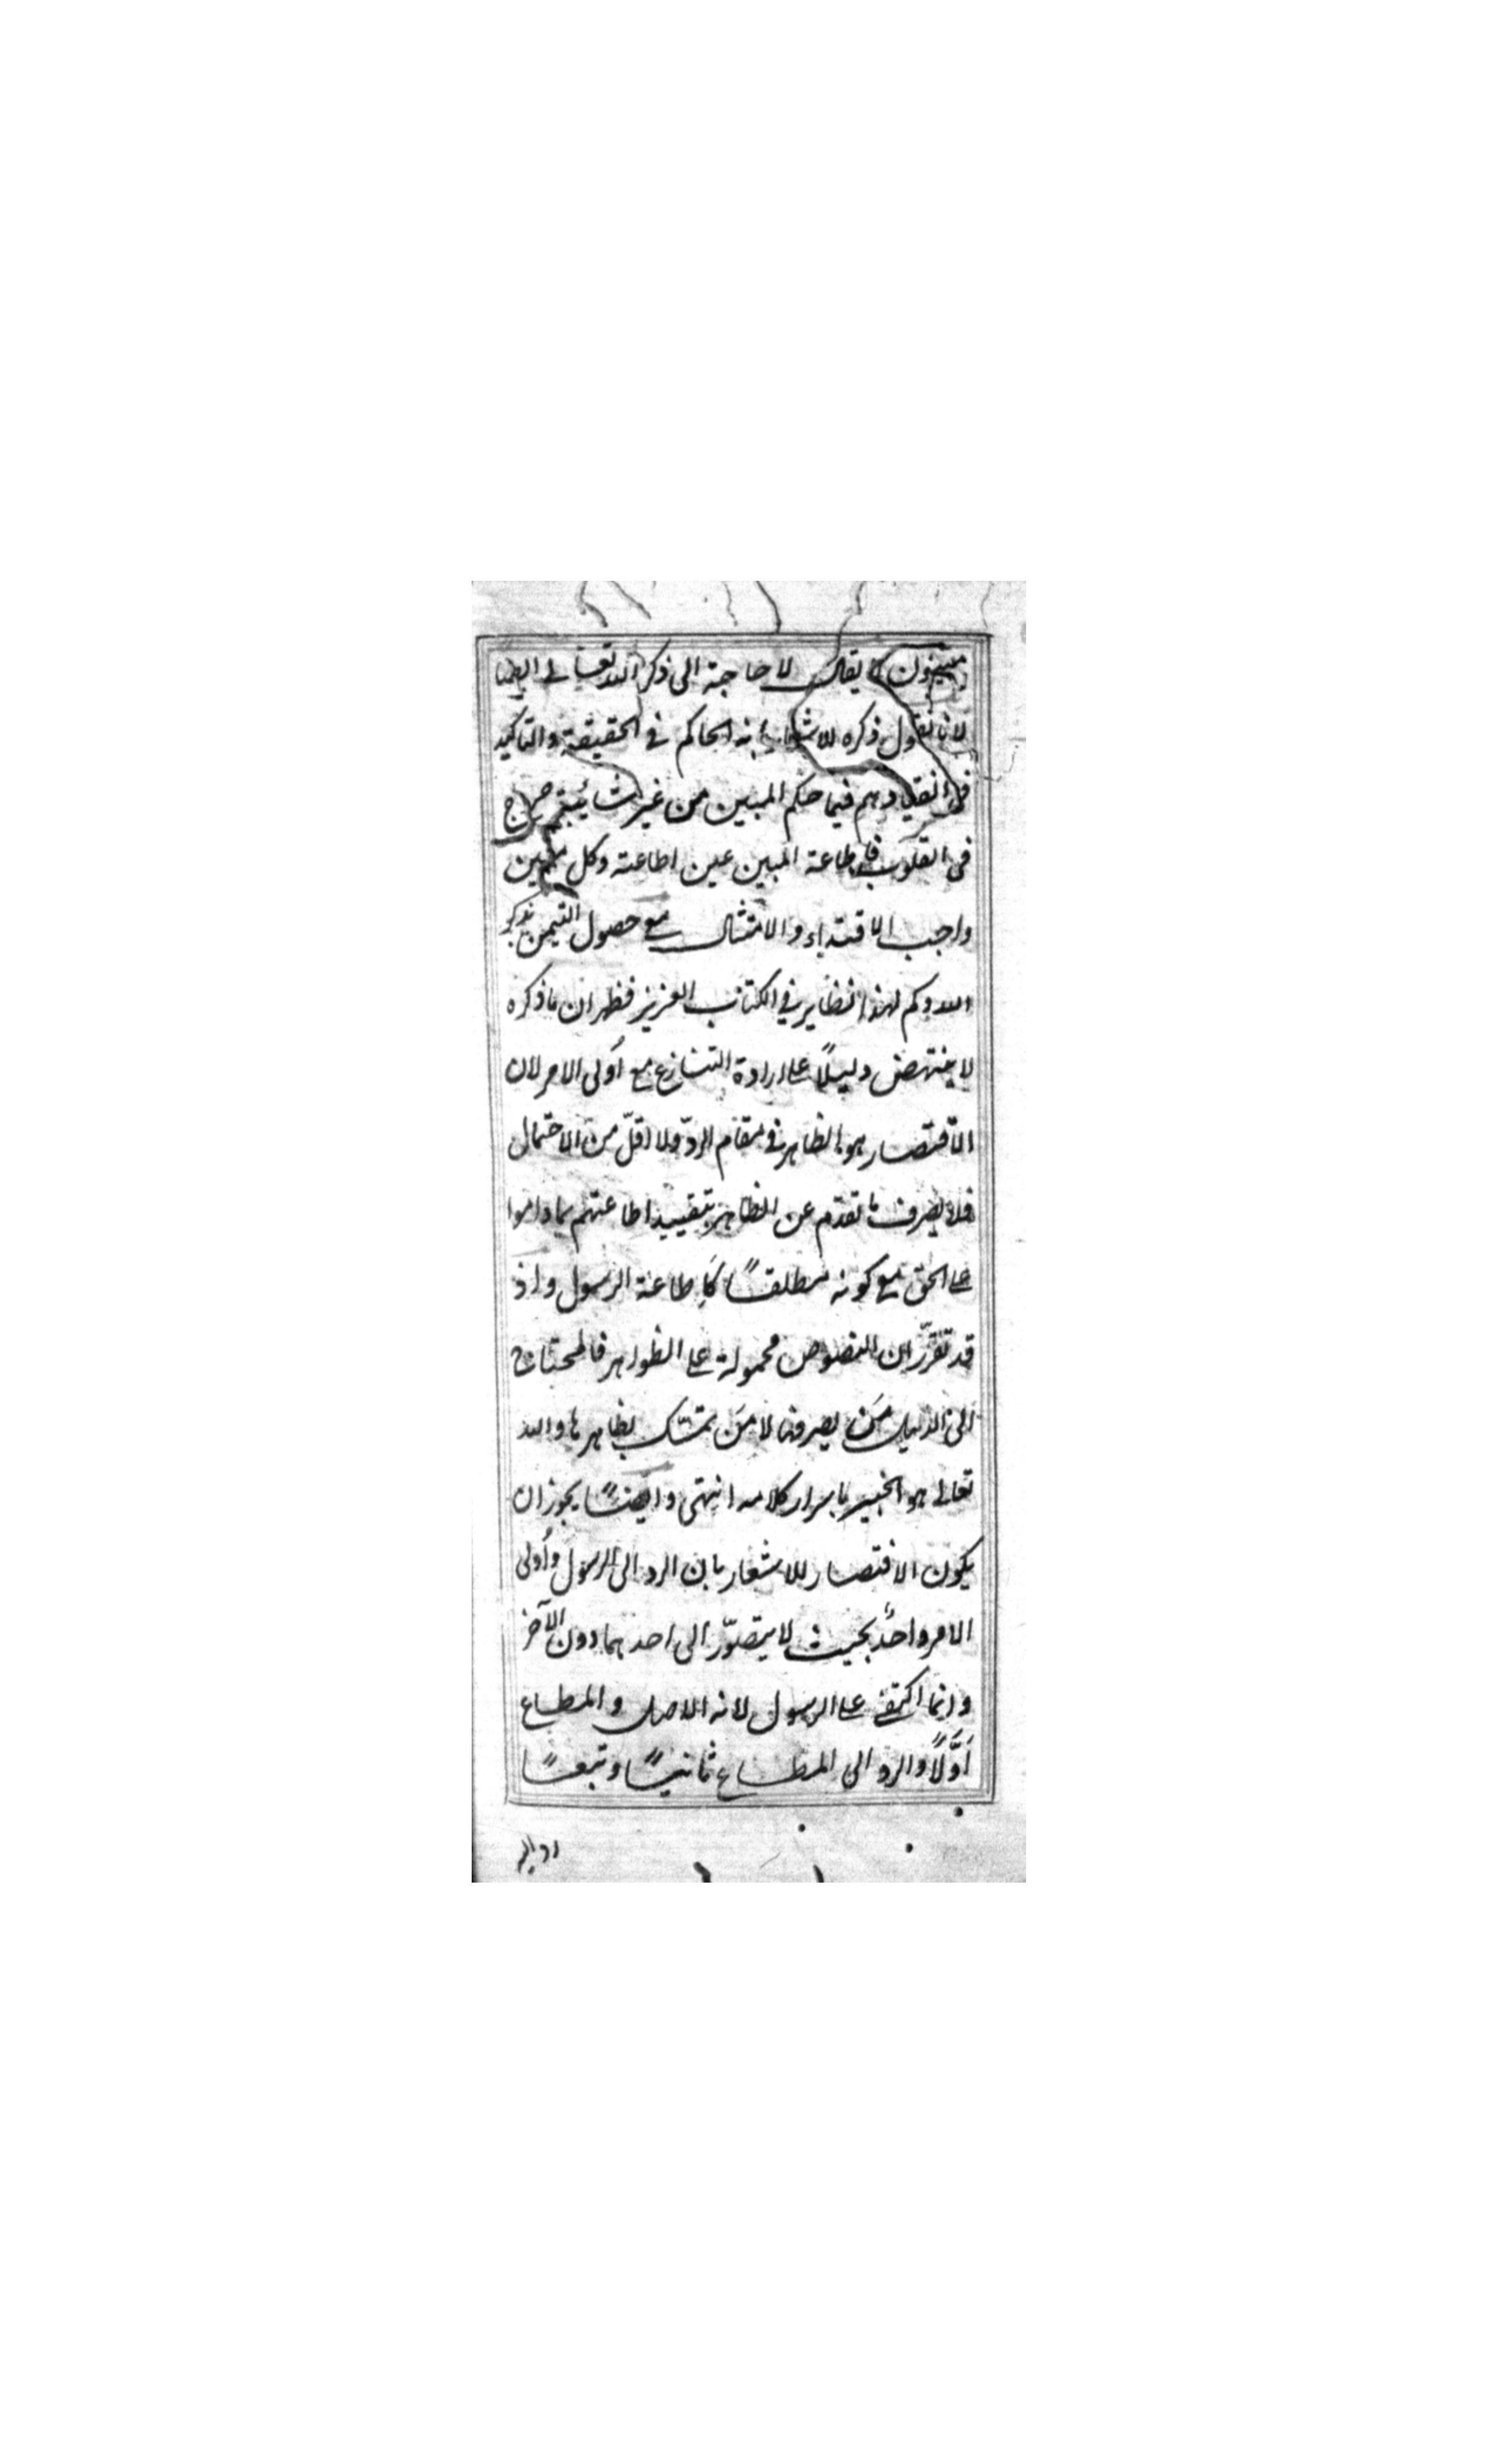 مبينون لا يقال لا حاجة الى ذكر الله تعالى ايضا
لانا نقول ذكره للاشعار بانه الحاكم في الحقيقة والتاكيد
في انقيادهم فيما حكم المبين من غير شائبة حرج
في القلوب فاطاعة المبين عين اطاعته وكل مبين
واجب الاقتداء والامتثال مع حصول التيمن بذكر
الله وكم لهذا نظاير في الكتاب العزيز فظهر ان ما ذكره
لا ينتهض دليلًا على ارادة التنازع مع أولى الامر لان
الاقتصار هو الظاهر في مقام الردّ ولا اقلّ من الاحتمال
فلا يصرف ما تقدّم عن الظاهر بتقييد اطاعتهم بما داموا
على الحق مع كونه مطلقًا كاطاعة الرسول واذ
قد تقرّر ان النصوص محمولة على الظواهر فالمحتاج
الى الدليل مَن يصرفها لا مَن تمسّك بظاهرها والله
تعالى هو الخبير باسرار كلامه انتهى وايضًا يجوز ان
يكون الاقتصار للاشعار بان الرد الى الرسول وأولى
الامر واحدٌ بحيث لا يتصوّر الى احدهما دون الآخر
وانما اكتفى على الرسول لانه الاصل والمطاع
أوَّلًا والرد الى المطاع ثانيًا وتبعًا
رد اليه